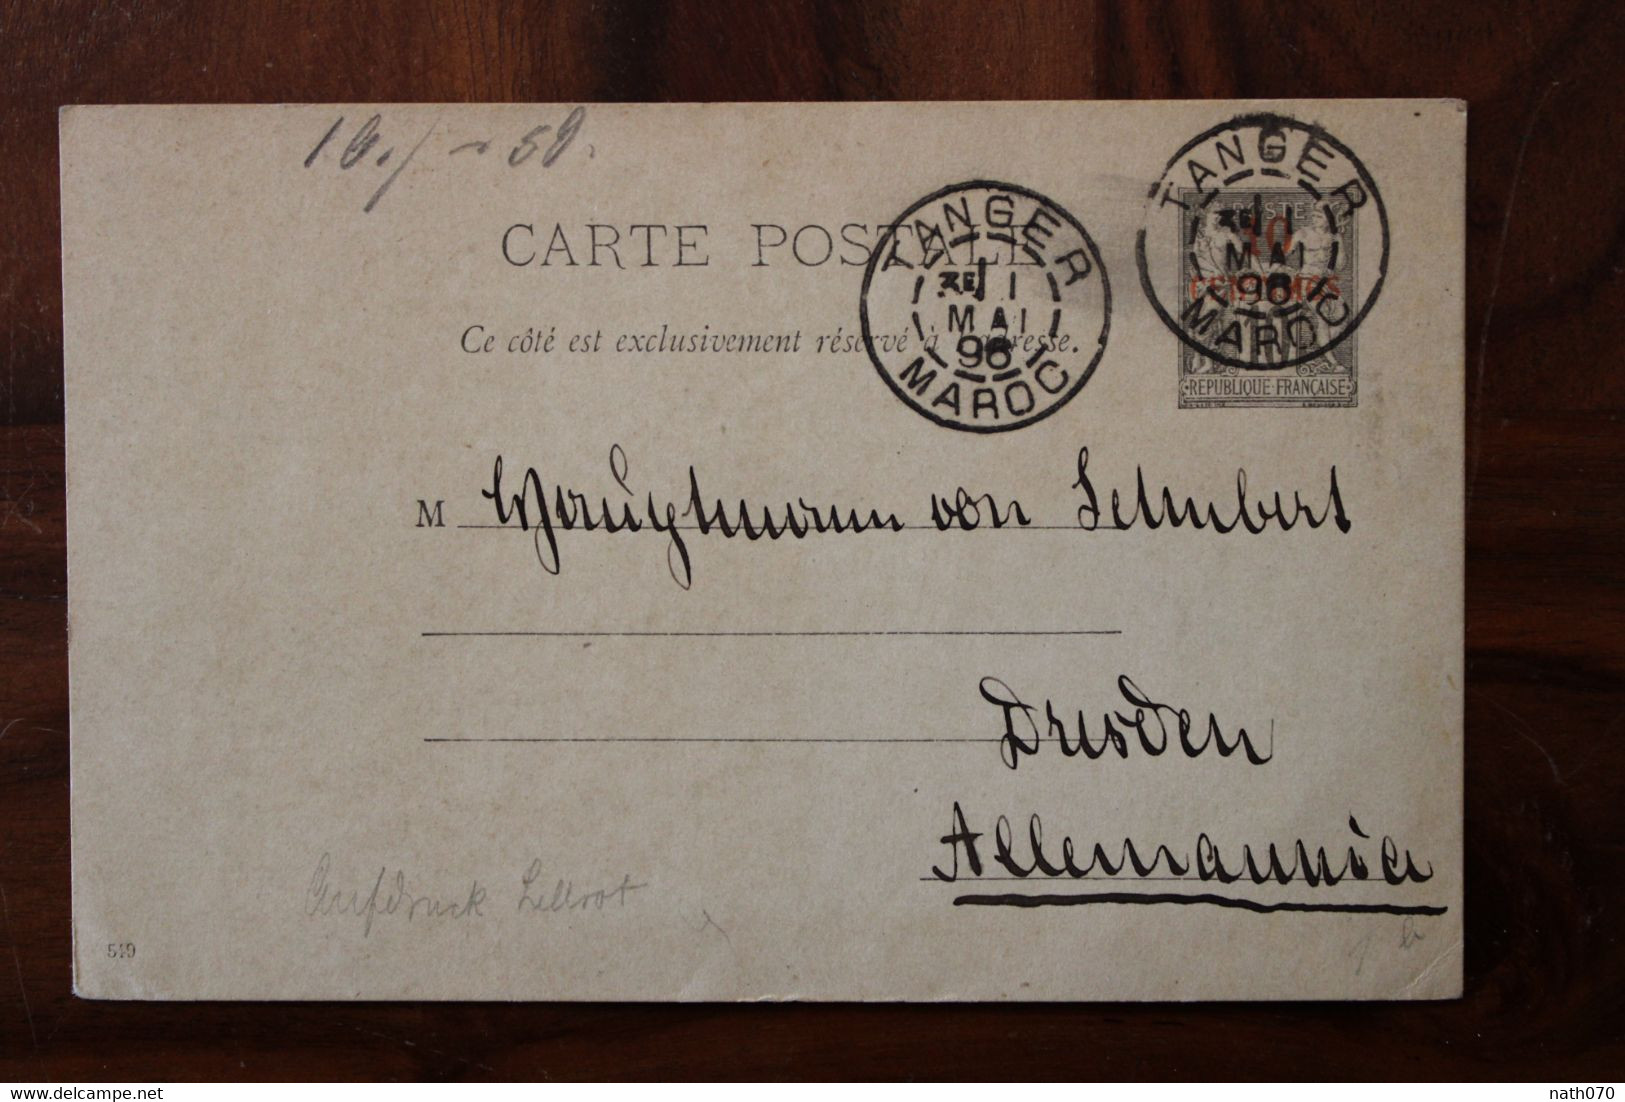 10./-50.
CARTE POSTALE
Ce côté est exclusivement réservé à l'adresse.
TANGER
3E 1
MAI
96
MAROC
TANGER
3E 1
MAI
96
MAROC
POSTES
10
CENTIMOS
REPUBLIQUE FRANÇAISE
M Hauptmann von Schubert
Dresden
Allemannia
Aufdruck hellrot
519
delcampe.net
nath070